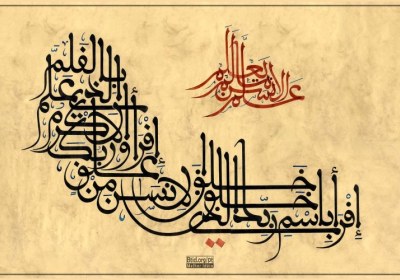 إقرأ باسم ربك الذي خلق
خلق الإنسان من علق
إقرأ وربك الأكرم
الذي علم بالقلم
علم الإنسان ما لم يعلم